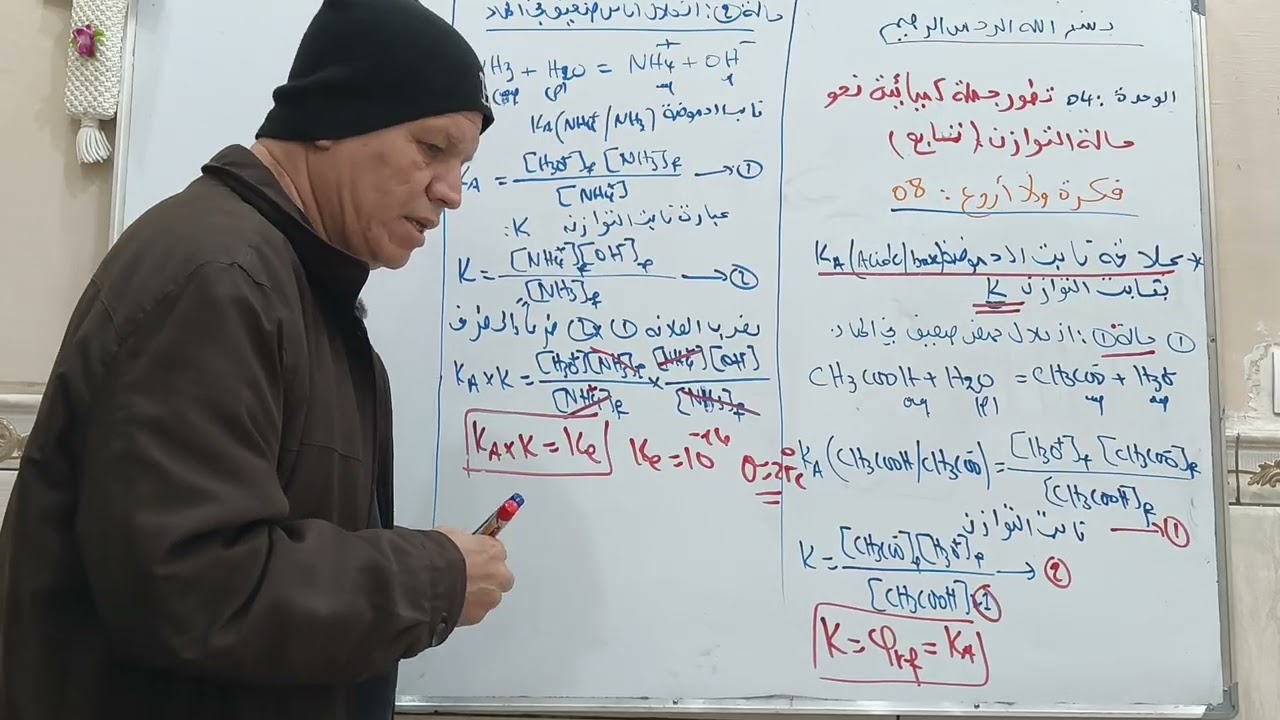 بسم الله الرحمن الرحيم
الوحدة 04: تطور جملة كيميائية نحو
حالة التوازن (تابع)
فكرة ولا أروع: 08
* علاقة ثابت الحموضة KA (Acide/base)
بثابت التوازن K
① حالة ①: انحلال حمض ضعيف في الماء.
CH3COOH + H2O = CH3COO⁻ + H3O⁺
aq (l) aq aq
KA (CH3COOH/CH3COO⁻) = [H3O⁺]f [CH3COO⁻]f / [CH3COOH]f → ①
ثابت التوازن
K = [CH3COO⁻]f [H3O⁺]f / [CH3COOH]f → ②
K = Qrf = KA
حالة ②: انحلال أساس ضعيف في الماء
H3 + H2O = NH4⁺ + OH⁻
aq (l) aq q
ثابت الحموضة KA (NH4⁺/NH3)
KA = [H3O⁺]f [NH3]f / [NH4⁺] → ①
عبارة ثابت التوازن K:
K = [NH4⁺]f [OH⁻]f / [NH3]f → ②
بضرب العلاقة ① × ② طرفاً إلى طرف
KA × K = [H3O⁺][NH3]f / [NH4⁺]f × [NH4⁺][OH⁻] / [NH3]f
KA × K = Ke Ke = 10⁻¹⁴ θ = 25°c